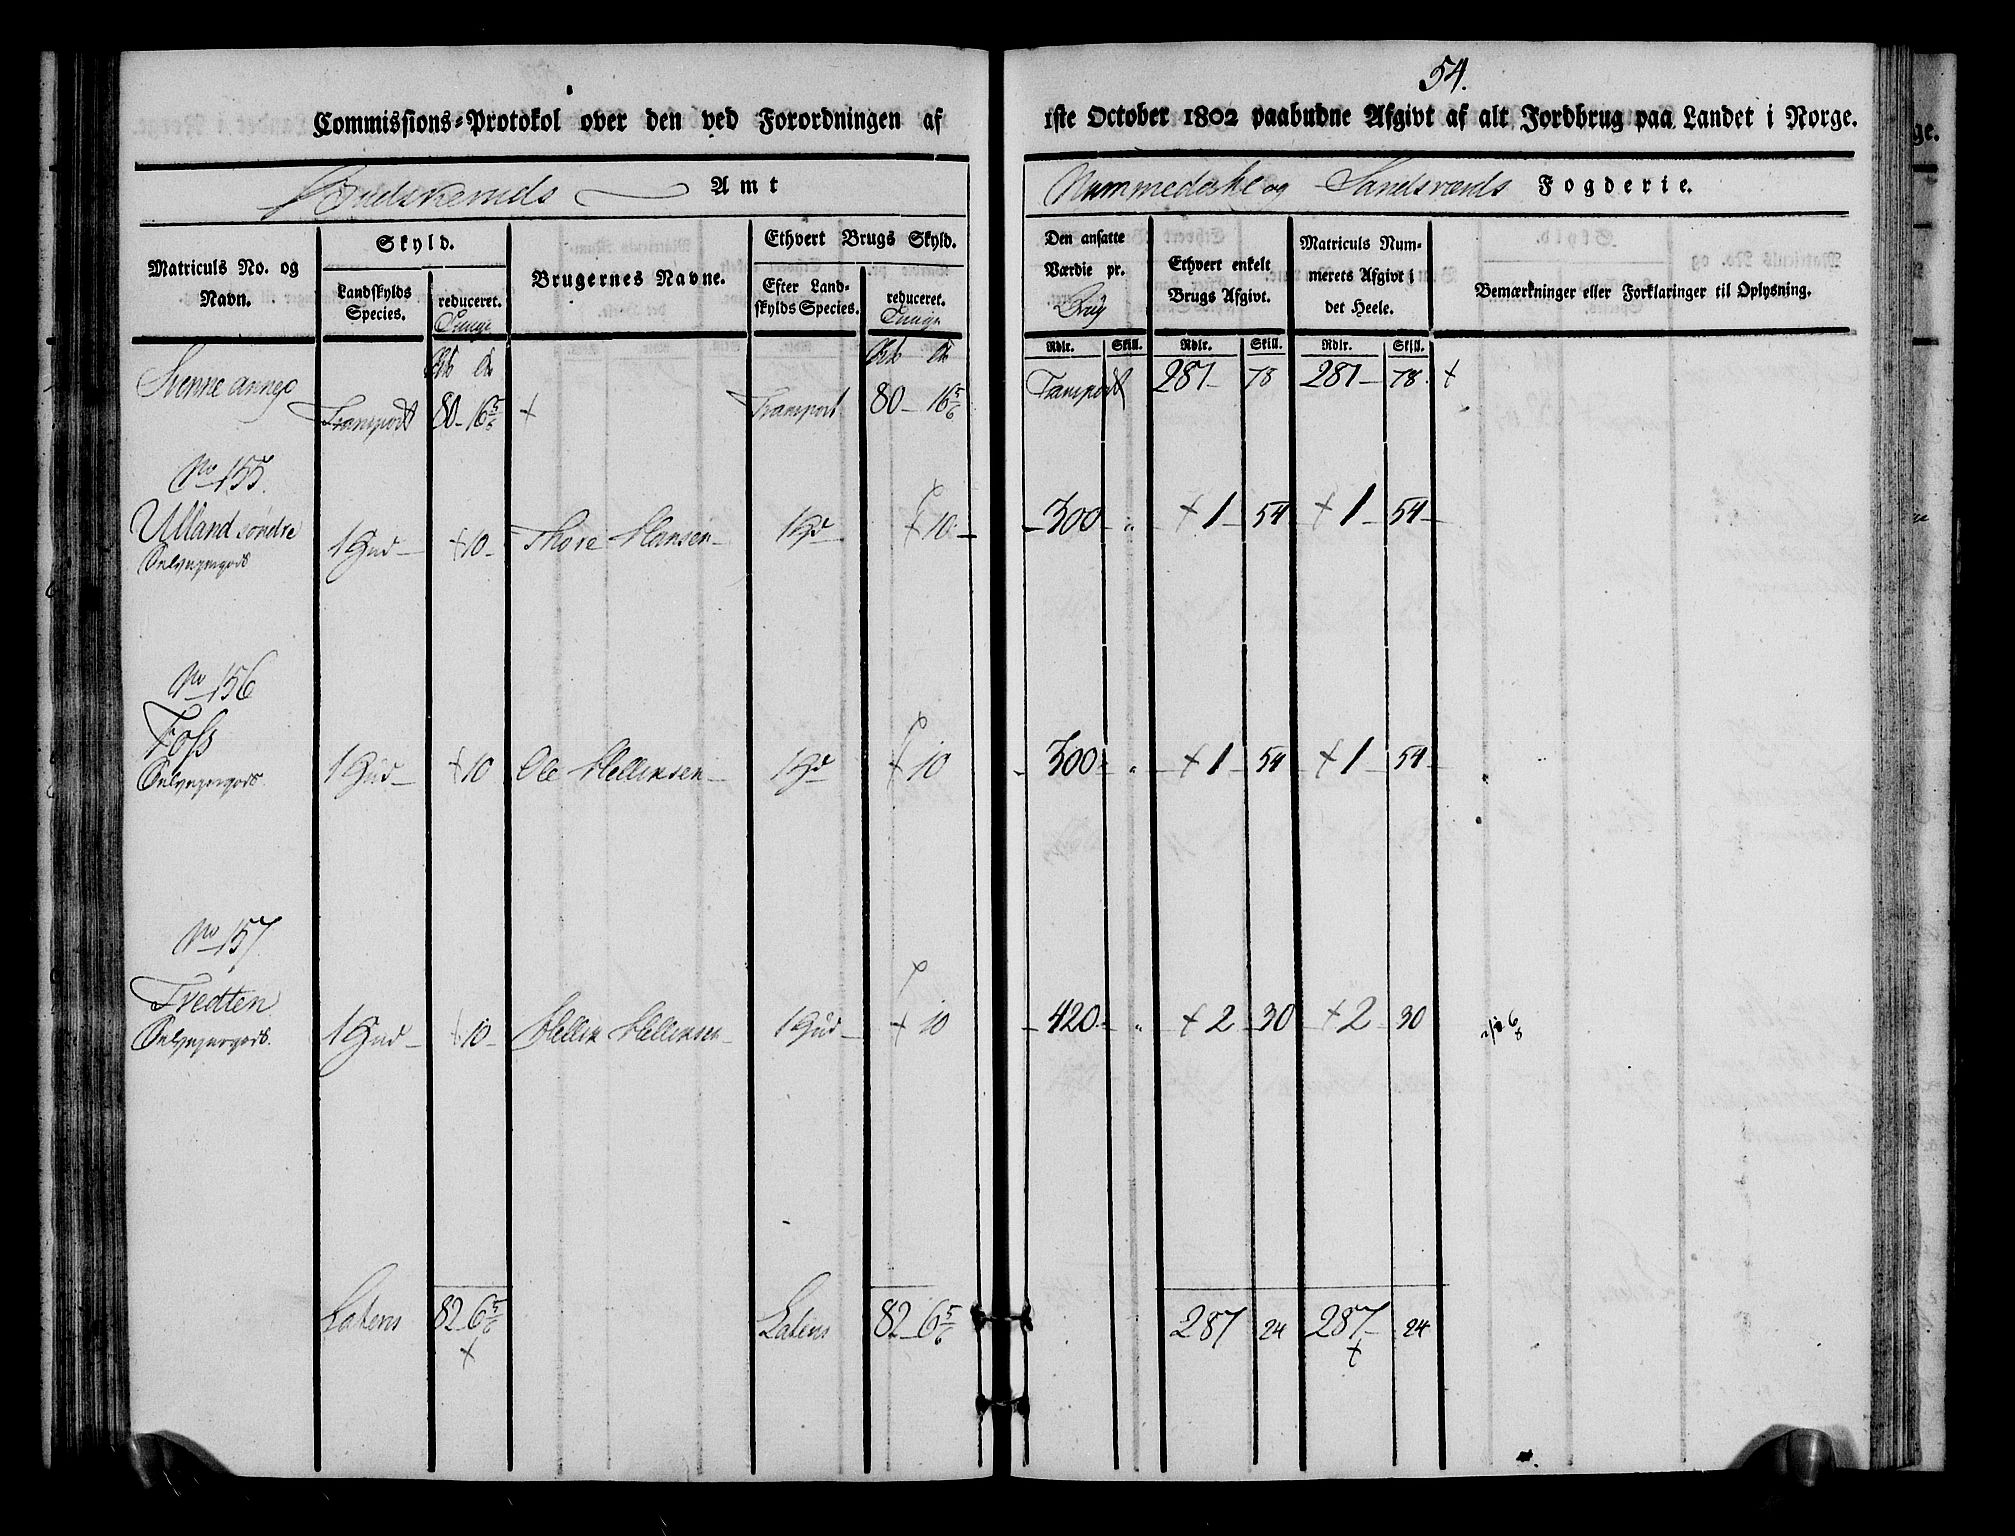 54.
Commissions-Protokol over den ved Forordningen af 1ste October 1802 paabudne Afgivt af alt Jordbrug paa Landet i Norge.
Budskeruds Amt
Nummedahl og Sandsværds Fogderie.
Matriculs No. og Navn.
Skyld.
Landskylds Species.
reduceret.
Tunge
Brugernes Navne.
Ethvert Brugs Skyld.
Efter Landskylds Species.
reduceret.
Tunge
Den ansatte Værdie pr.
Brug
Ethvert enkelt Brugs Afgivt.
Matriculs Nummerets Afgivt i det Heele.
Bemærkninger eller Forklaringer til Oplysning.
Rdlr. Skill. Rdlr. Skill. Rdlr. Skill.
Svenne annex
Transport 80 - 16 5/6 + Transport 80 - 16 5/6 Transport 281 - 78 281 - 78 +
No 155.
Ulland söndre 1 Hud - + 10 - Thore Hansen - 1 Hd - + 10 - - 300 - " - + 1 54 + 1 54 -
Selveyergods
No 156
Foss
Selveyergods 1 Hud - + 10 Ole Hellensen - 1 Hd + 10 - 300 - " - + 1 - 54 + 1 - 54 -
No 157
Tvedten
Selveyergods. 1 Hud - + 10 - Hellen Hellensen - 1 Hud - + 10 - 420 - " + 2 - 30 + 2 - 30
Laters 82 - 6 5/6 Laters 82 - 6 5/6 287 24 287 - 24
+ +